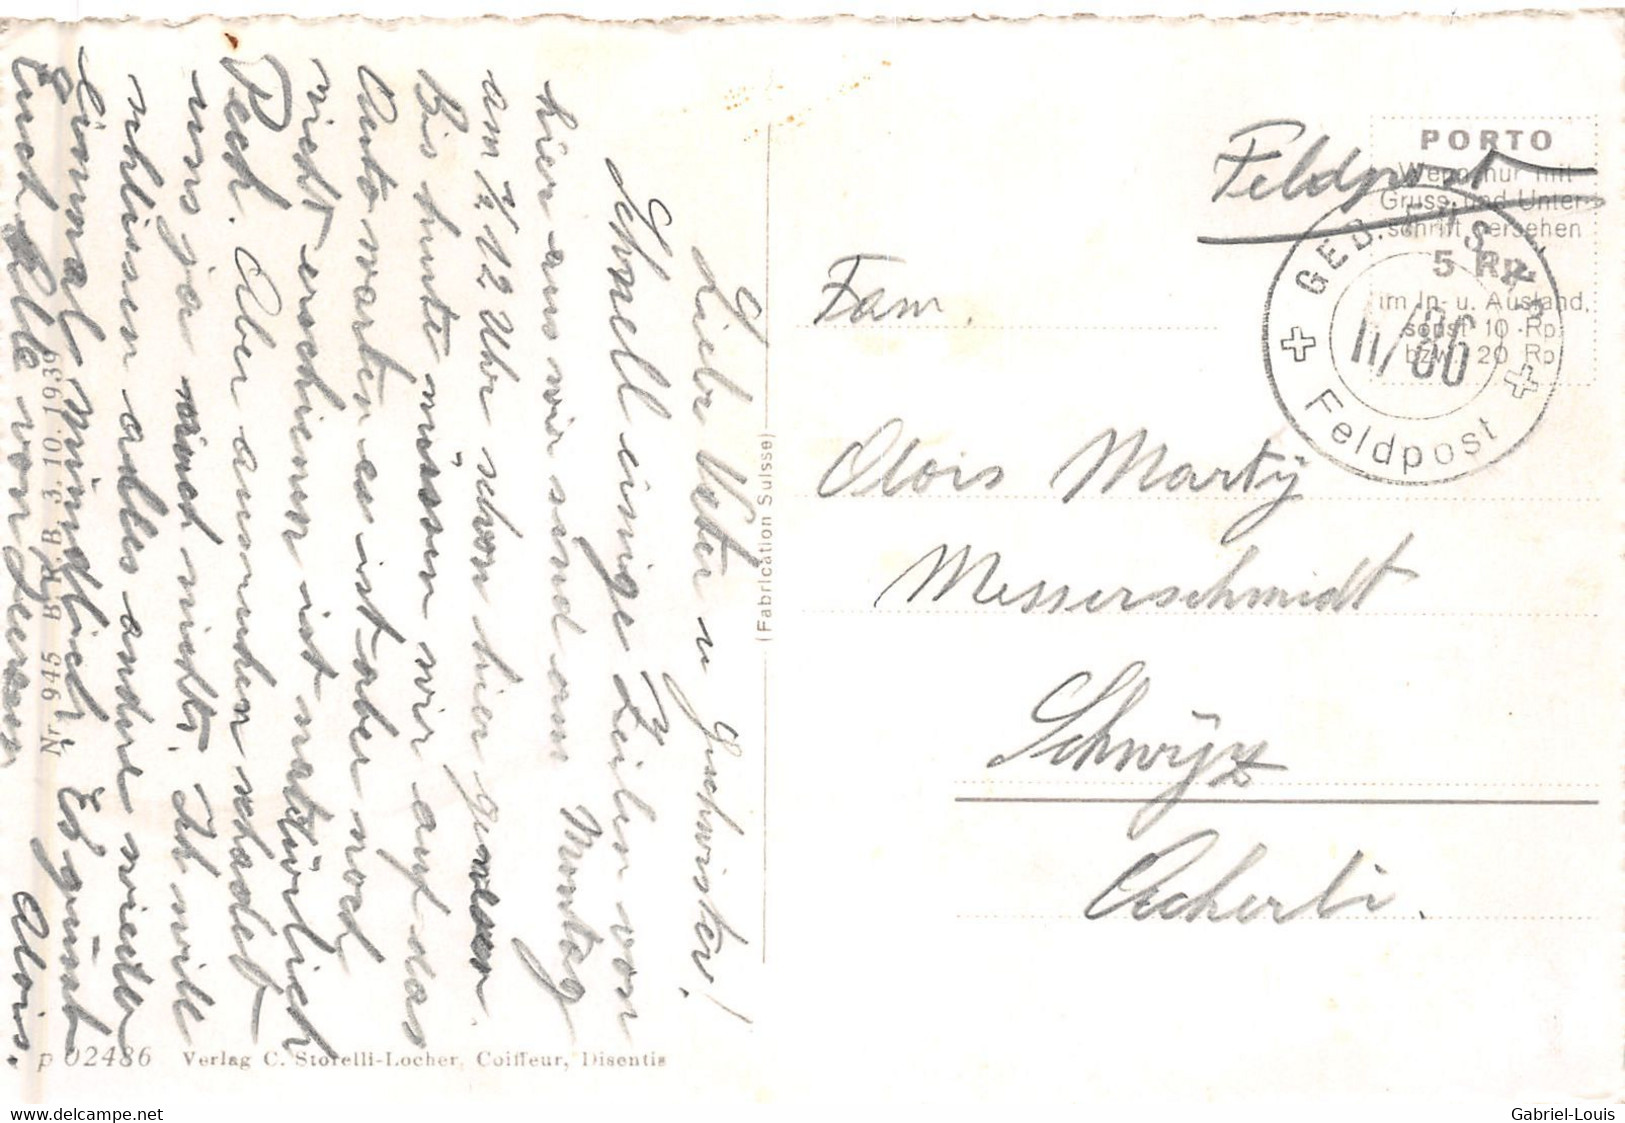 Liebe Vater u Geschwister!
Schnell einige Zeilen von
hier aus wir sind am Montag
am ½ 12 Uhr schon hier gewesen.
Bis heute müssen wir auf das
Auto warten es ist aber noch
nicht erschienen ist natürlich
Pech. Aber ausruhen schadet
uns ja auch nichts. Ich will
schliessen alles andere wieder
einmal mündlich. Es grüsst
Euch Alle von Herzen Alois.
Nr 945 B. R. B. 3. 10. 1939
p 02486 Verlag C. Storelli-Locher, Coiffeur, Disentis
(Fabrication Suisse)
Feldpost
PORTO
Wenn nur mit
Gruss und Unter-
schrift versehen
5 Rp.
im In- u. Ausland,
sonst 10 Rp.
bzw. 20 Rp.
GEB. FÜS.
II/86
Feldpost
Fam.
Alois Martÿ
Messerschmidt
Schwÿz
Acherli.
www.delcampe.net
Gabriel-Louis